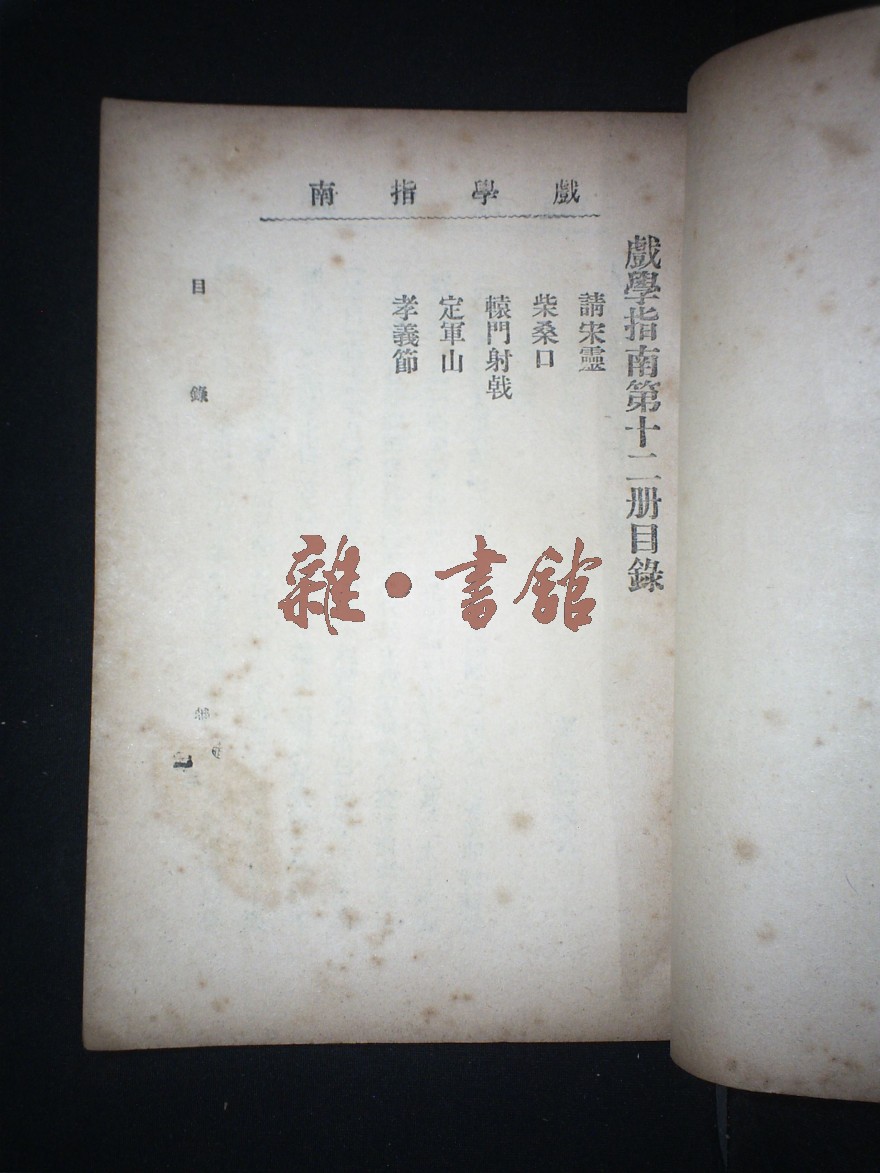 戲學指南
戲學指南第十二册目錄
請宋靈
柴桑口
轅門射戟
定軍山
孝義節
目錄
雜·書館